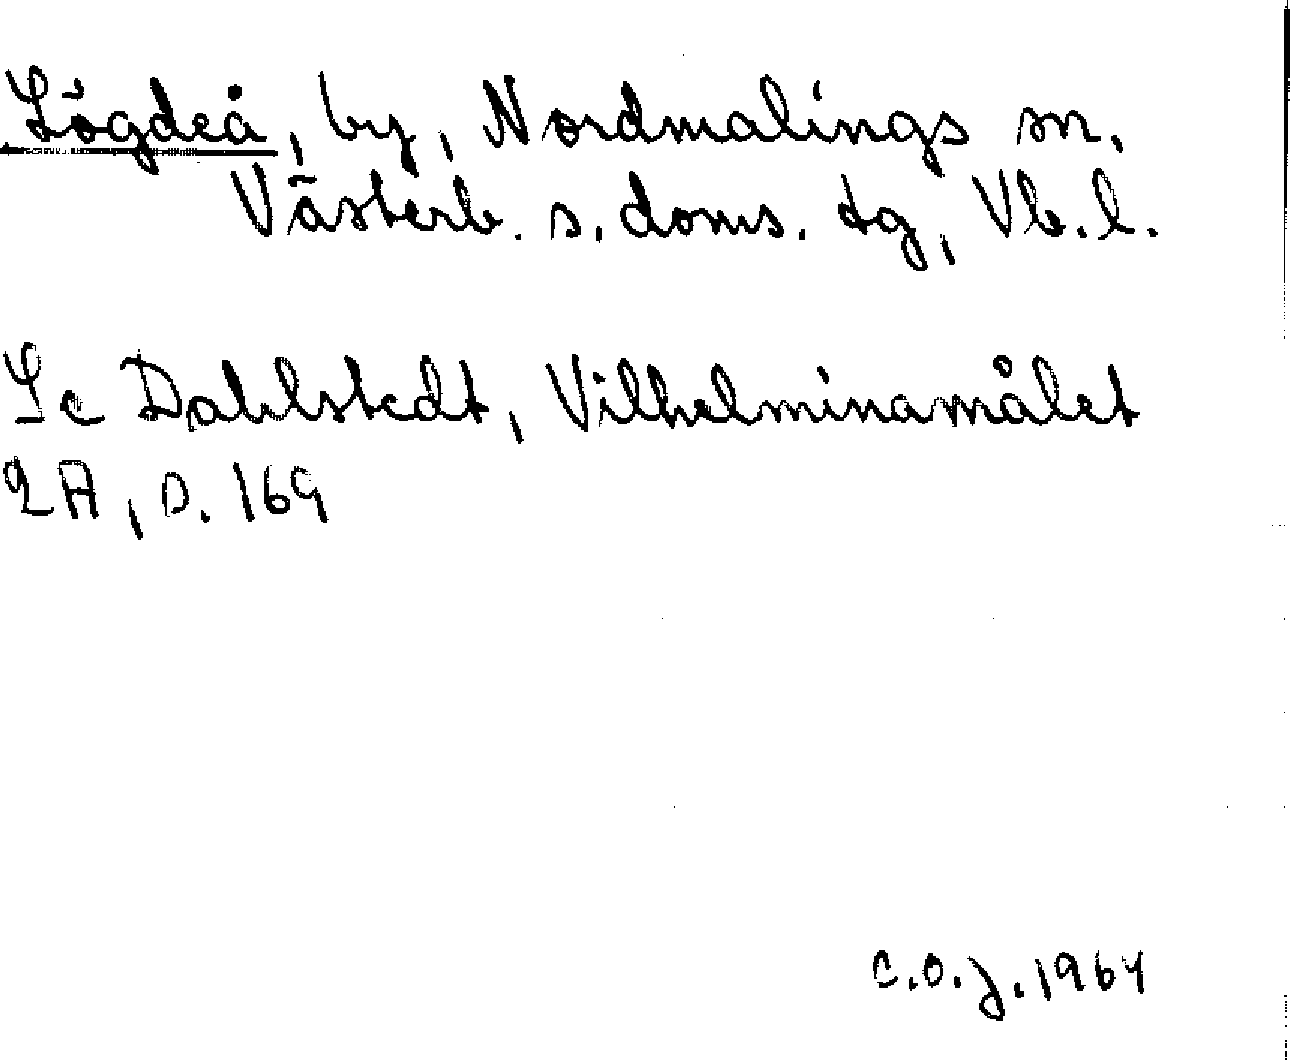 Lögdeå, by, Nordmalings sn.
Västerb. s. doms. tg, Vb. l.
Se Dahlstedt, Vilhelminamålet
2A, s. 169
C.O.J. 1964